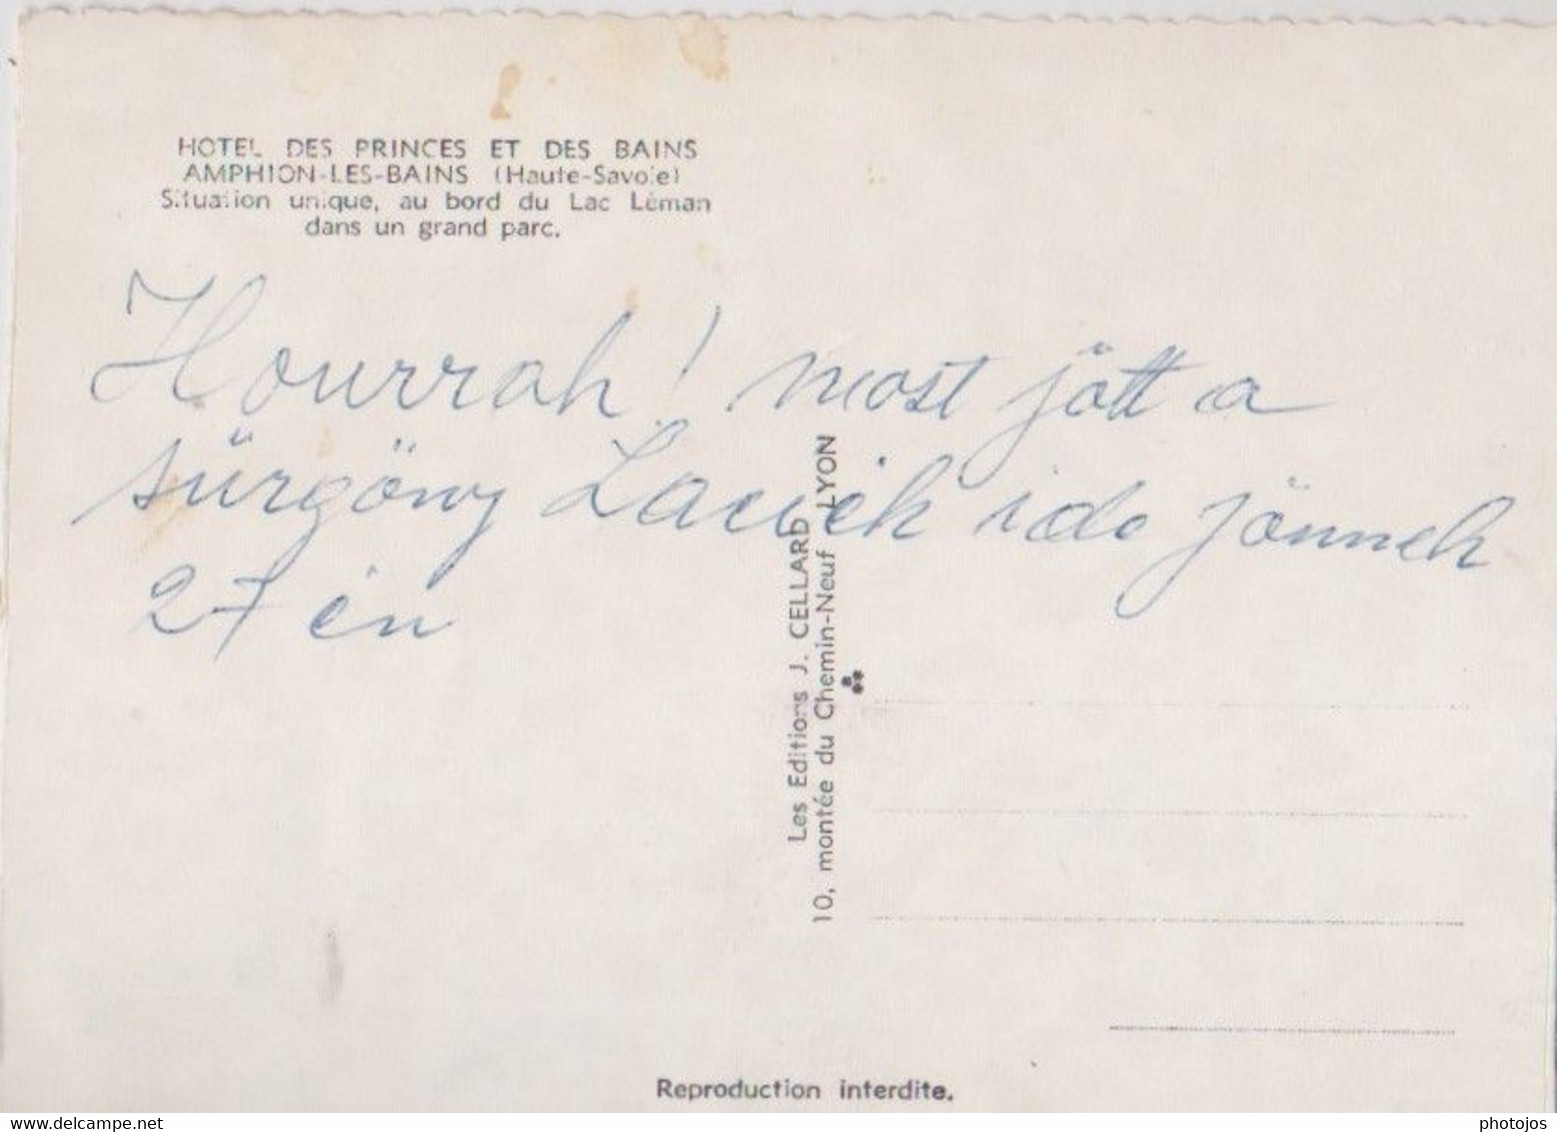 HOTEL DES PRINCES ET DES BAINS
AMPHION-LES-BAINS (Haute-Savoie)
Situation unique, au bord du Lac Léman
dans un grand parc.
Hourrah! most jött a
sürgöny Laciék ide jönnek
27 én
Les Editions J. CELLARD
10, montée du Chemin-Neuf LYON
Reproduction interdite.
www.delcampe.net
photojos